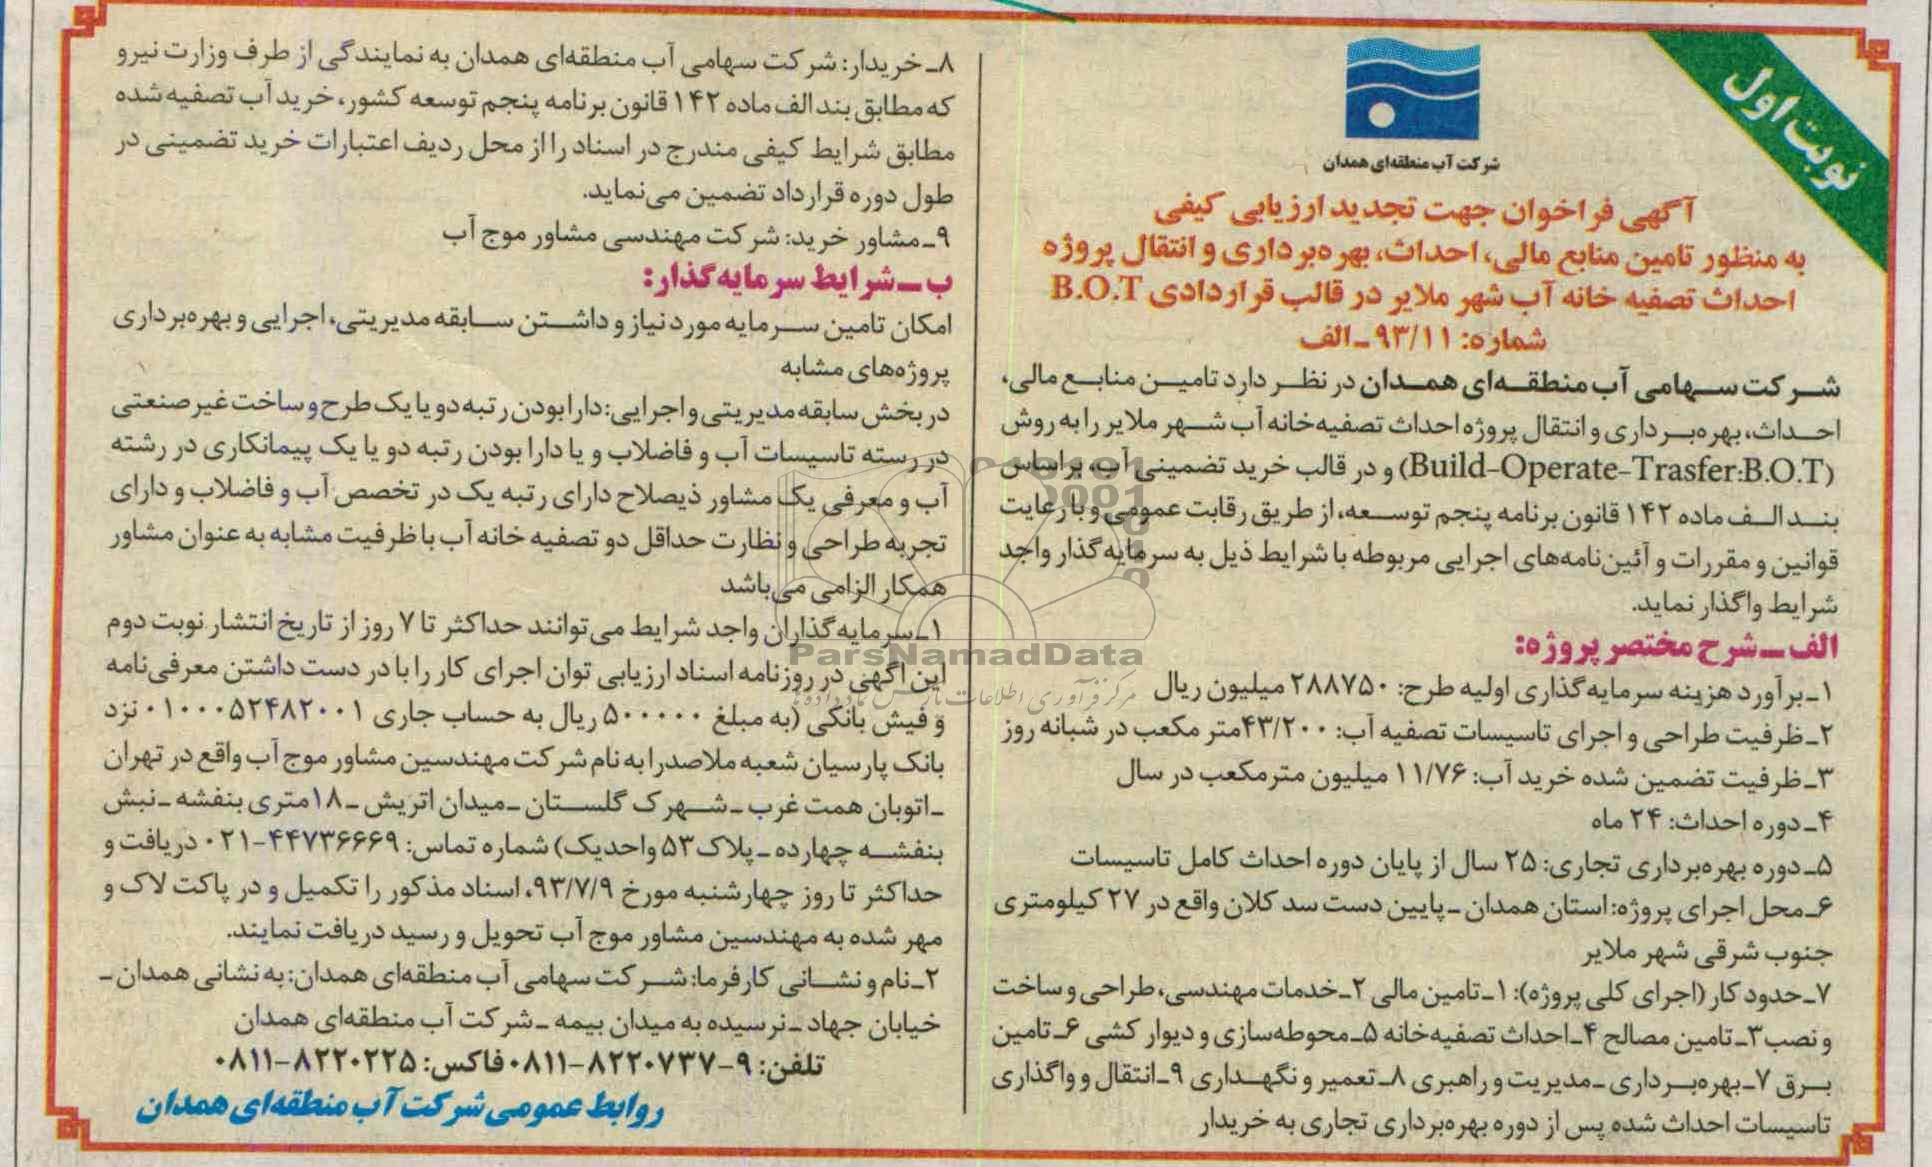 نوبت اول
شرکت آب منطقه‌ای همدان
آگهی فراخوان جهت تجدید ارزیابی کیفی
به منظور تامین منابع مالی، احداث، بهره‌برداری و انتقال پروژه
احداث تصفیه خانه آب شهر ملایر در قالب قراردادی B.O.T
شماره: ۹۳/۱۱-الف
شرکت سهامی آب منطقه‌ای همدان در نظر دارد تامین منابع مالی،
احداث، بهره‌برداری و انتقال پروژه احداث تصفیه‌خانه آب شهر ملایر را به روش
(Build-Operate-Trasfer:B.O.T) و در قالب خرید تضمینی آب، براساس
بند الف ماده ۱۴۲ قانون برنامه پنجم توسعه، از طریق رقابت عمومی و با رعایت
قوانین و مقررات و آئین‌نامه‌های اجرایی مربوطه با شرایط ذیل به سرمایه‌گذار واجد
شرایط واگذار نماید.
الف ـ شرح مختصر پروژه:
۱ـ برآورد هزینه سرمایه‌گذاری اولیه طرح: ۲۸۸۷۵۰ میلیون ریال
۲ـ ظرفیت طراحی و اجرای تاسیسات تصفیه آب: ۴۳/۲۰۰متر مکعب در شبانه روز
۳ـ ظرفیت تضمین شده خرید آب: ۱۱/۷۶ میلیون مترمکعب در سال
۴ـ دوره احداث: ۲۴ ماه
۵ـ دوره بهره‌برداری تجاری: ۲۵ سال از پایان دوره احداث کامل تاسیسات
۶ـ محل اجرای پروژه: استان همدان ـ پایین دست سد کلان واقع در ۲۷ کیلومتری
جنوب شرقی شهر ملایر
۷ـ حدود کار (اجرای کلی پروژه): ۱ـ تامین مالی ۲ـ خدمات مهندسی، طراحی و ساخت
و نصب ۳ـ تامین مصالح ۴ـ احداث تصفیه‌خانه ۵ـ محوطه‌سازی و دیوار کشی ۶ـ تامین
برق ۷ـ بهره‌برداری ـ مدیریت و راهبری ۸ـ تعمیر و نگهداری ۹ـ انتقال و واگذاری
تاسیسات احداث شده پس از دوره بهره‌برداری تجاری به خریدار
۸ـ خریدار: شرکت سهامی آب منطقه‌ای همدان به نمایندگی از طرف وزارت نیرو
که مطابق بند الف ماده ۱۴۲ قانون برنامه پنجم توسعه کشور، خرید آب تصفیه شده
مطابق شرایط کیفی مندرج در اسناد را از محل ردیف اعتبارات خرید تضمینی در
طول دوره قرارداد تضمین می‌نماید.
۹ـ مشاور خرید: شرکت مهندسی مشاور موج آب
ب ـ شرایط سرمایه‌گذار:
امکان تامین سرمایه مورد نیاز و داشتن سابقه مدیریتی، اجرایی و بهره‌برداری
پروژه‌های مشابه
در بخش سابقه مدیریتی و اجرایی: دارا بودن رتبه دو یا یک طرح و ساخت غیر صنعتی
در رسته تاسیسات آب و فاضلاب و یا دارا بودن رتبه دو یا یک پیمانکاری در رشته
آب و معرفی یک مشاور ذیصلاح دارای رتبه یک در تخصص آب و فاضلاب و دارای
تجربه طراحی و نظارت حداقل دو تصفیه خانه آب با ظرفیت مشابه به عنوان مشاور
همکار الزامی می‌باشد
۱ـ سرمایه‌گذاران واجد شرایط می‌توانند حداکثر تا ۷ روز از تاریخ انتشار نوبت دوم
این آگهی در روزنامه اسناد ارزیابی توان اجرای کار را با در دست داشتن معرفی‌نامه
و فیش بانکی (به مبلغ ۵۰۰۰۰۰ ریال به حساب جاری ۰۱۰۰۰۵۲۴۸۲۰۰۱ نزد
بانک پارسیان شعبه ملاصدرا به نام شرکت مهندسین مشاور موج آب واقع در تهران
ـ اتوبان همت غرب ـ شهرک گلستان ـ میدان اتریش ـ ۱۸متری بنفشه ـ نبش
بنفشه چهارده ـ پلاک ۵۳ واحدیک) شماره تماس: ۴۴۷۳۶۶۶۹-۰۲۱ دریافت و
حداکثر تا روز چهارشنبه مورخ ۹۳/۷/۹، اسناد مذکور را تکمیل و در پاکت لاک و
مهر شده به مهندسین مشاور موج آب تحویل و رسید دریافت نمایند.
۲ـ نام و نشانی کارفرما: شرکت سهامی آب منطقه‌ای همدان: به نشانی همدان ـ
خیابان جهاد ـ نرسیده به میدان بیمه ـ شرکت آب منطقه‌ای همدان
تلفن: ۹-۸۲۲۰۷۳۷-۰۸۱۱ فاکس: ۸۲۲۰۲۲۵-۰۸۱۱
روابط عمومی شرکت آب منطقه‌ای همدان
ParsNamadData